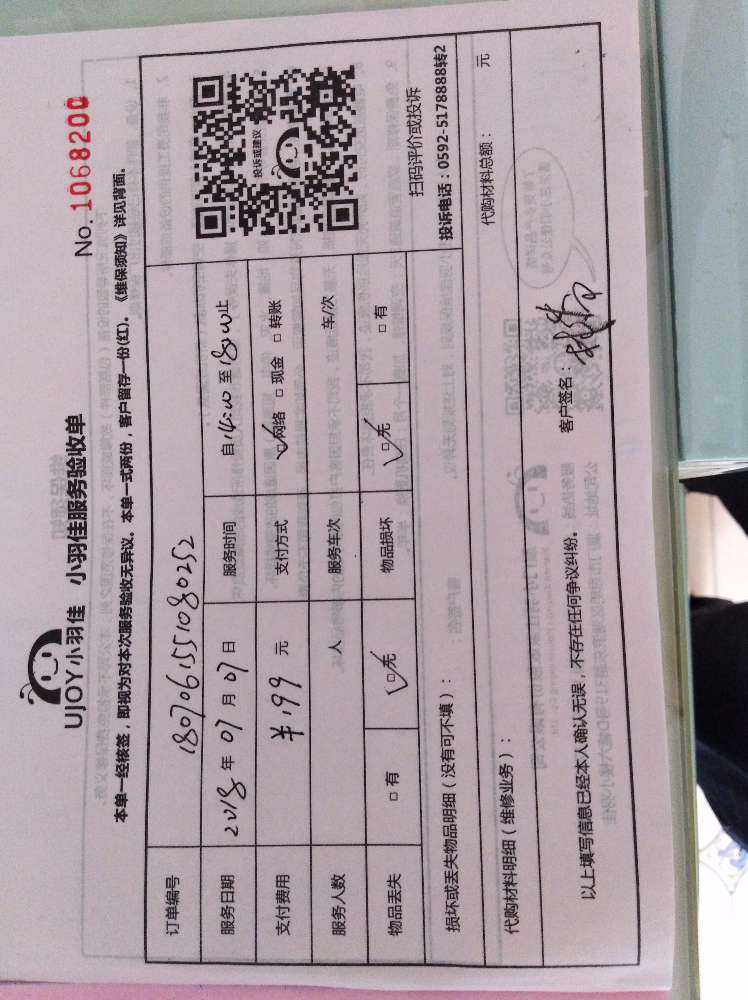 UJOY小羽佳 小羽佳服务验收单
No. 1068200
本单一经核签，即视为对本次服务验收无异议。本单一式两份，客户留存一份(红)。《维保须知》详见背面。
订单编号 1807061551080252
服务日期 2018 年 07 月 07 日 服务时间 自 14:00 至 18:00 止
支付费用 ¥199 元 支付方式 ☑网络 □ 现金 □ 转账
服务人数 人 服务车次 车/次
物品丢失 □ 有 ☑无 物品损坏 ☑无 □ 有
投诉或建议
扫码评价或投诉
投诉电话：0592-5178888转2
损坏或丢失物品明细（没有可不填）：
代购材料明细（维修业务）： 代购材料总额： 元
以上填写信息已经本人确认无误，不存在任何争议纠纷。 客户签名：